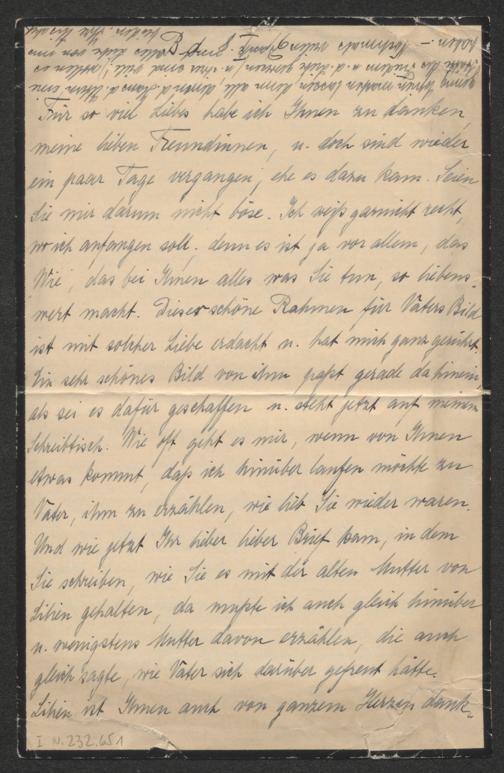 Für so viel Liebes habe ich Ihnen zu danken,
meine lieben Freundinnen, u. doch sind wieder
ein paar Tage vergangen, ehe es dazu kam. Seien
Sie mir darum nicht böse. Ich weiß garnicht recht,
wo ich anfangen soll. denn es ist ja vor allem, das
Wie, das bei Ihnen alles was Sie tun, so liebens-
wert macht. Dieser schöne Rahmen für Vaters Bild
ist mit solcher Liebe erdacht u. hat mich ganz gerührt.
Ein sehr schönes Bild von ihm paßt gerade da hinein
als sei es dafür geschaffen u. steht jetzt auf meinem
Schreibtisch. Wie oft geht es mir, wenn von Ihnen
etwas kommt, daß ich hinüber laufen möchte zu
Vater, ihm zu erzählen, wie lieb Sie wieder waren.
Und wie jetzt Ihr lieber lieber Brief kam, in dem
Sie schreiben, wie Sie es mit der alten Mutter von
Lilien gehalten, da mußte ich auch gleich hinüber
u. wenigstens Mutter davon erzählen, die auch
gleich sagte, wie Vater sich darüber gefreut hätte.
Lilien ist Ihnen auch von ganzem Herzen dank-
I N. 232.651